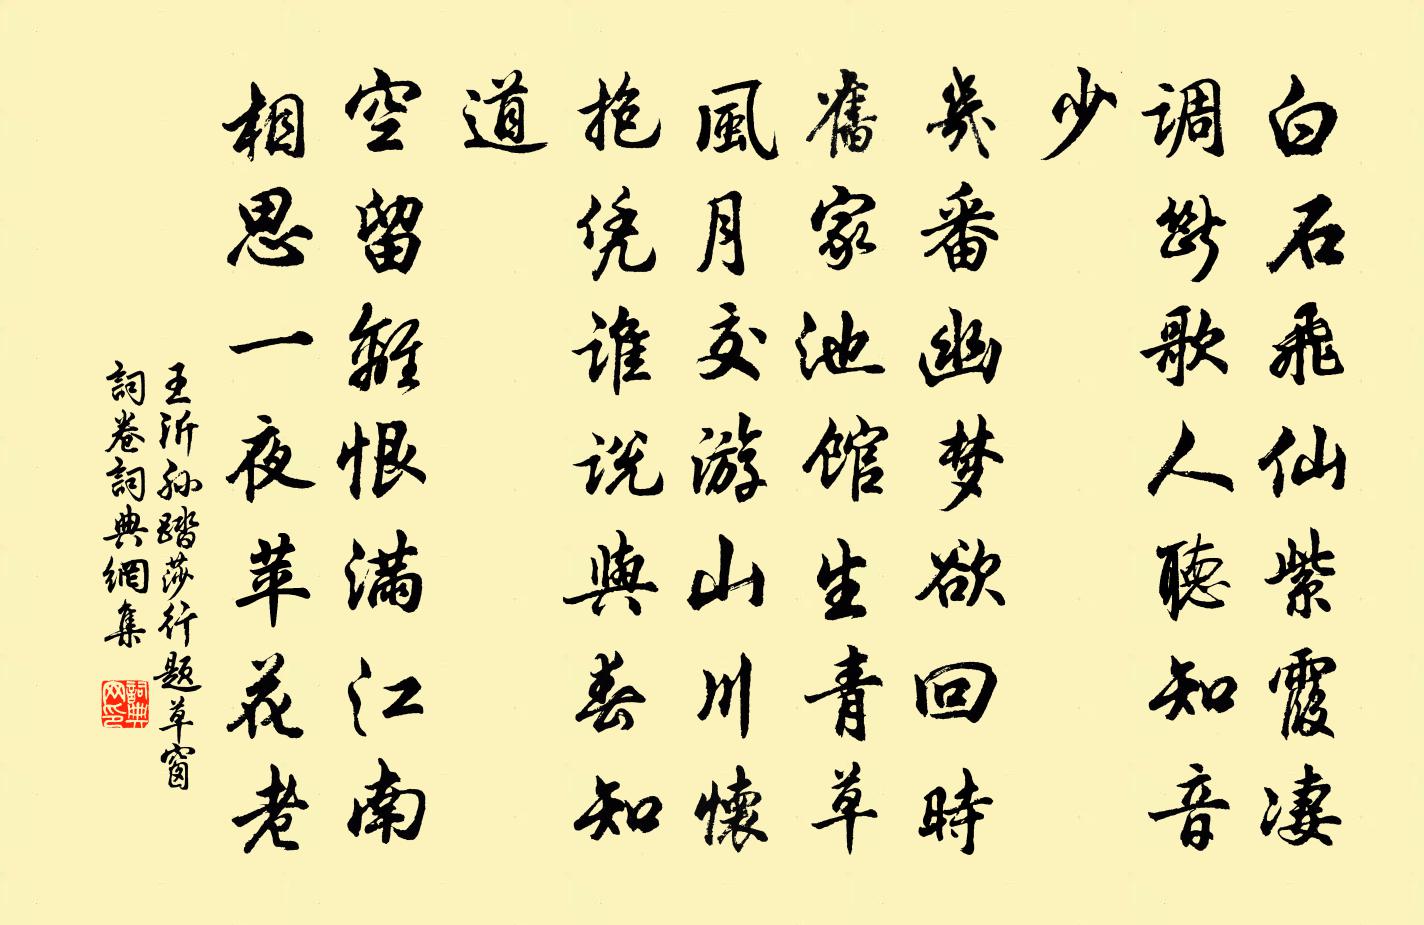 白石飛仙紫霞凄
调斷歌人聽知音
少
幾番幽梦欲回時
舊家池館生青草
風月交游山川懷
抱凭谁说與春知
道
空留離恨滿江南
相思一夜苹花老
王沂孙踏莎行题草窗
詞卷詞典網集
詞典
网印